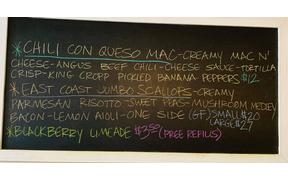 *CHILI CON QUESO MAC-CREAMY MAC N'
CHEESE-ANGUS BEEF CHILI-CHEESE SAUCE-TORTILLA
CRISP-KING CROPP PICKLED BANANA PEPPERS $12
*EAST COAST JUMBO SCALLOPS-CREAMY
PARMESAN RISOTTO SWEET PEAS-MUSHROOM MEDLEY
BACON-LEMON AIOLI-ONE SIDE (GF) SMALL $20
LARGE $27
*BLACKBERRY LIMEADE $3.50 (FREE REFILLS)